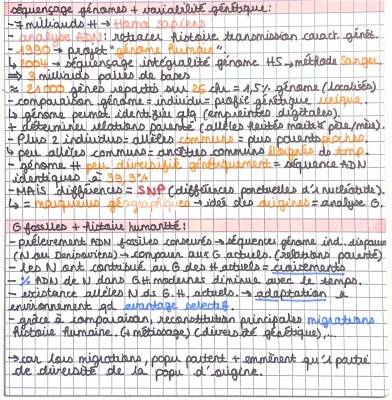 séquençage génomes + variabilité génétique:
- 7 milliards H → Homo sapiens
- analyse ADN: retracer histoire transmission caract. génét.
- 1990 → projet "génome humain".
↳ 2004 → séquençage intégralité génome HS → méthode Sanger.
⇒ 3 milliards paires de bases
≈ 21 000 gènes répartis sur 26 chr. = 1,5% génome (localisés)
- comparaison génome = individu = profil génétique unique
↳ génome permet identifier qlq (empreintes digitales).
+ déterminer relations parenté (allèles hérités maito père/mère).
- Plus 2 individus = allèles communs = plus parents proches.
↳ peu allèles communs = ancêtres communs éloignés ds tmp.
- génome H peu diversifié génétiquement = séquence ADN
identiques à 99,9%
- MAIS différences = SNP (différences ponctuelles d'1 nucléotide).
↳ = marqueurs géographiques → idée des origines = analyse G.
G fossiles + histoire humanité:
- prélèvement ADN fossiles conservés → séquencer génome ind. disparus
(N ou Denisoviens) → comparer aux G actuels. (relations parenté)
- les N ont contribué au G des H actuels = croisements
- % ADN de N dans G H modernes diminue avec le temps.
- existence allèles N ds G. H. actuels → adaptation à
environnement qd avantage sélectif.
- grâce à comparaison, reconstitution principales migrations
histoire humaine. (+ métissage) (diversité génétique)...
→ car lors migrations, popu partent + emmènent qu'1 partie
de diversité de la popu d'origine.